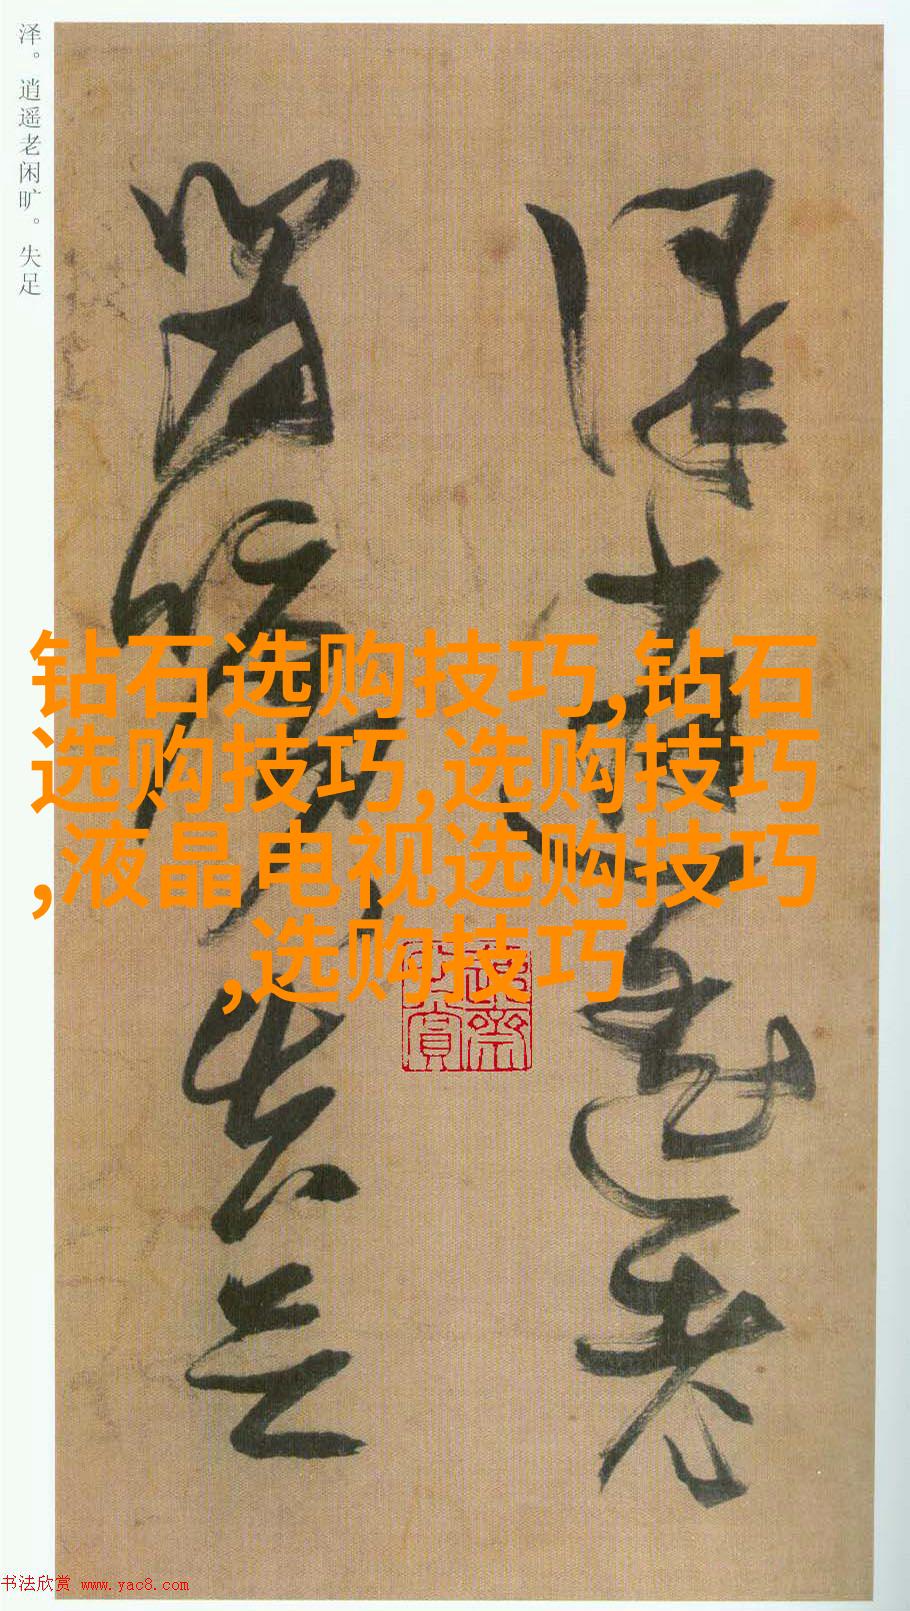 泽。逍遥老闲旷。失足
泽逍遥老
闲旷失足
钻石选购技巧,钻石
选购技巧,选购技巧
,液晶电视选购技巧
,选购技巧
书法欣赏 www.yac8.com